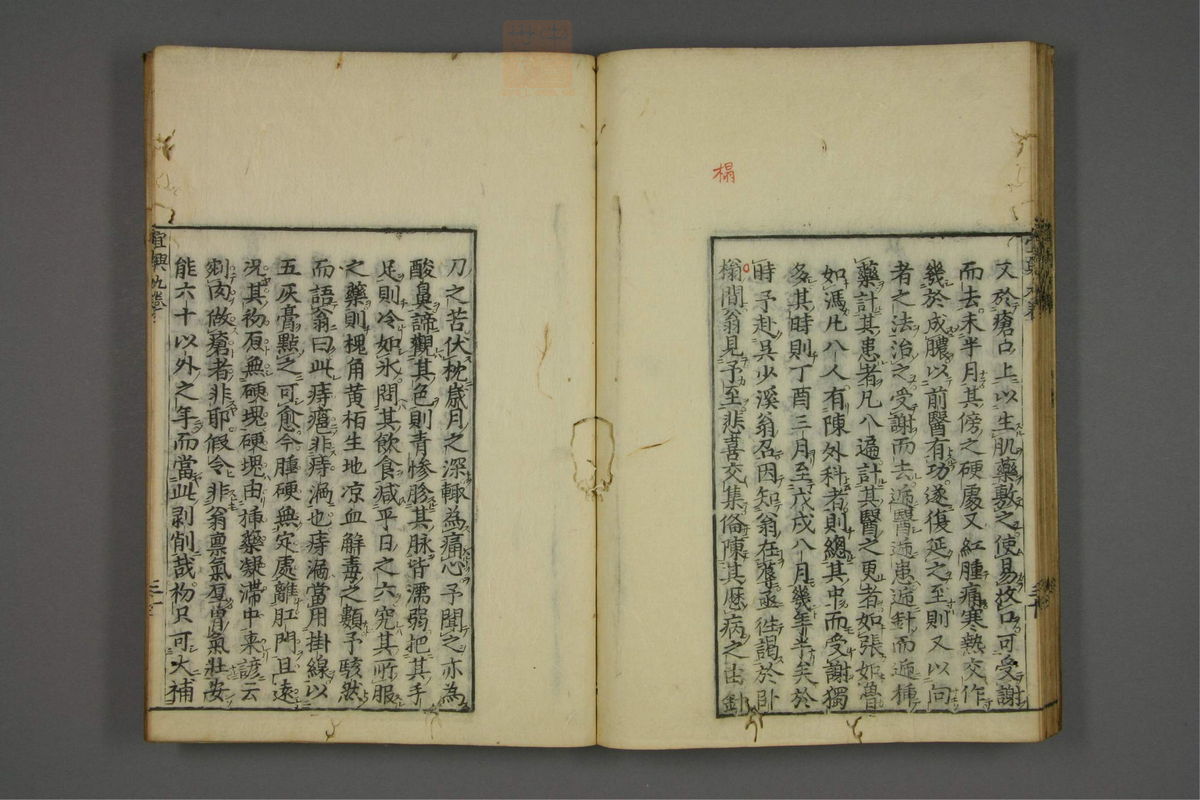 榻
又於瘡口上以生肌藥敷之使易收口可受謝
而去未半月其傍之硬處又紅腫痛寒熱交作
幾於成膿以前醫有功遂復延之至則又以向
者之法治之受謝而去遞醫遞患遞針而遞種
藥計其患者凡八遍計其醫之更者如張如魯
如馮凡八人有陳外科者則總其中而受謝獨
多其時則丁酉三月至戊戌八月幾年半矣於
時予赴吳少溪翁召因知翁在蓐亟徃謁於卧
榻間翁見予至悲喜交集俻陳其歷病之由針
三十
刀之苦伏枕歲月之深輙為痛心予聞之亦為
酸鼻諦觀其色則青慘胗其脉皆濡弱把其手
足則冷如氷問其飲食减平日之六究其所服
之藥則槐角黄栢生地凉血解毒之類予駭然
而語翁曰此痔瘡非痔漏也痔漏當用掛線以
五灰膏點之可愈今腫硬無定處離肛門且遠
况其初原無硬塊硬塊由挿藥凝滯中来諺云
剜肉做瘡者非耶假令非翁禀氣厚胃氣壯安
能六十以外之年而當此剥削哉枌只可大補
宜興 卷
三十一